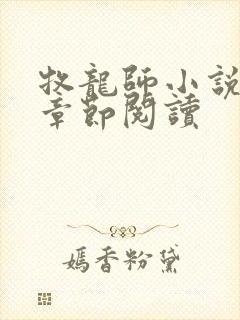 牧龍師小説
章節閱讀
嫣香粉黛